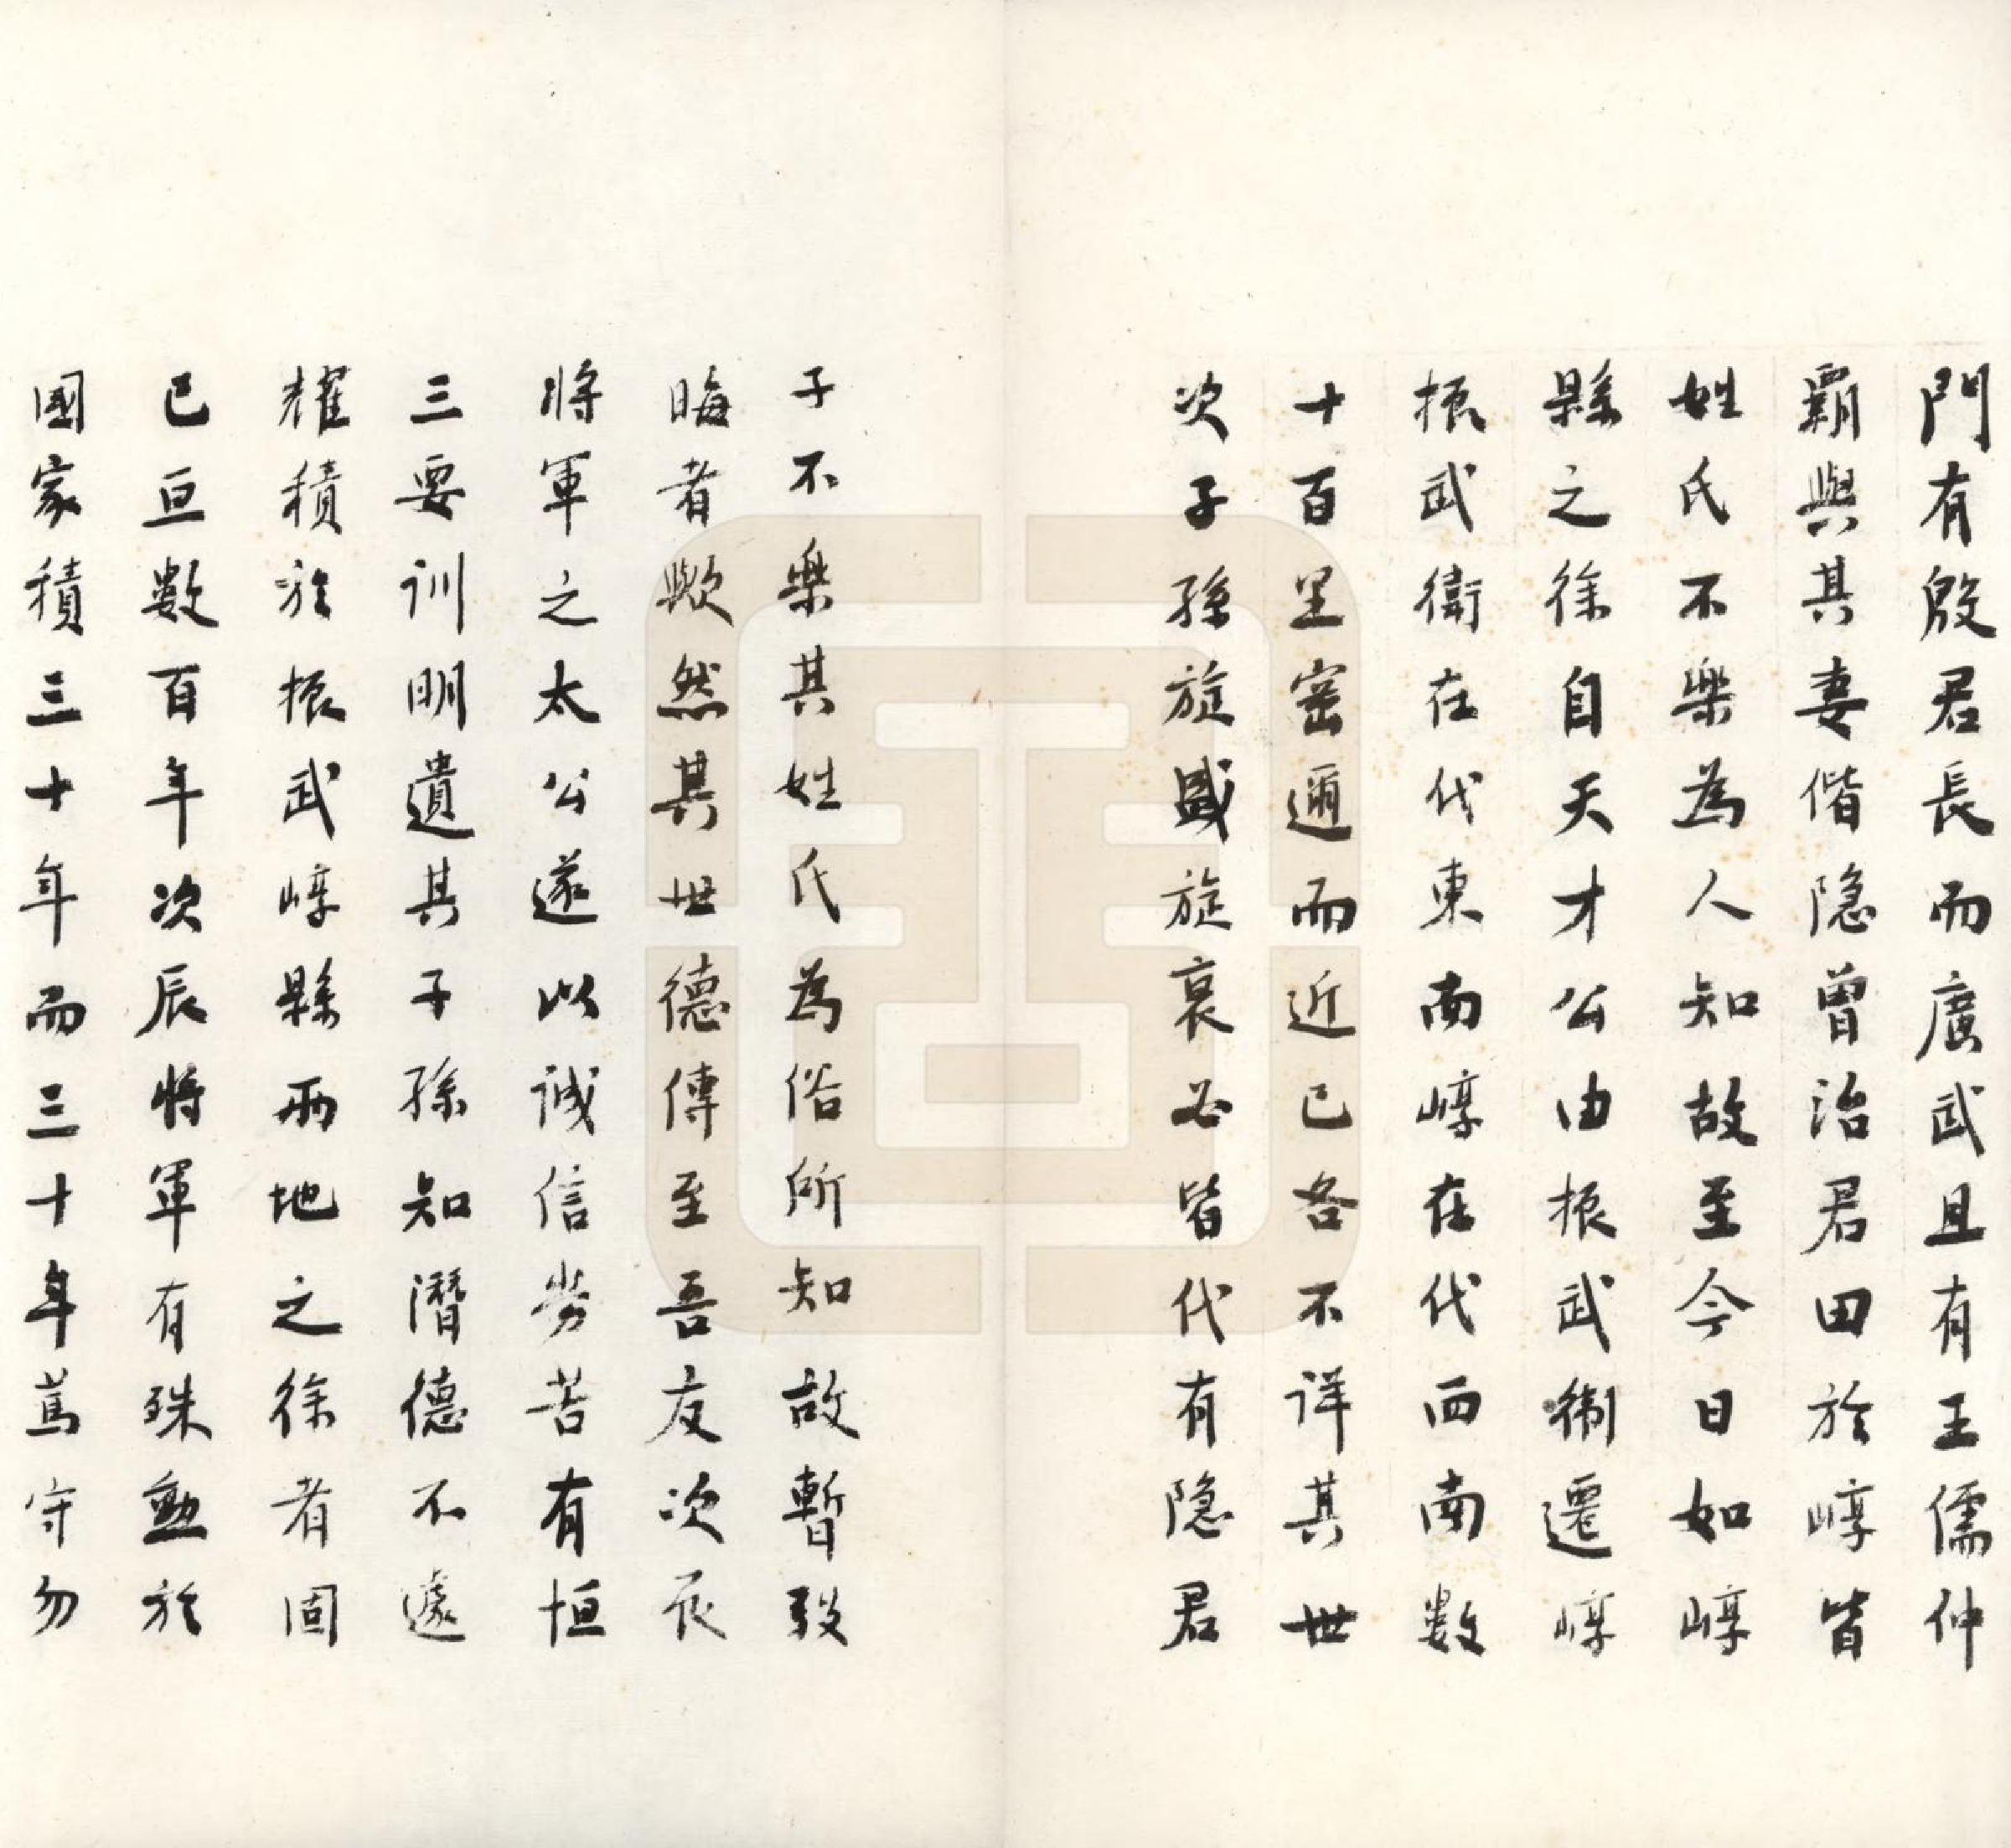 門有殷君長而廣武且有王儒仲
霸與其妻偕隐曾治君田於崞皆
姓氏不樂為人知故至今日如崞
縣之徐自天才公由振武衛遷崞
振武衛在代東南崞在代西南数
十百里密邇而近已各不詳其世
次子孫旋盛旋衰必皆代有隐君
子不樂其姓氏為俗所知故暫致
晦者歟然其世德傳至吾友次辰
將軍之太公遂以誠信勞苦有恒
三要训明遺其子孫知潛德不遠
耀積於振武崞縣兩地之徐者固
已亘數百年次辰將軍有殊勳於
國家積三十年而三十年篤守勿